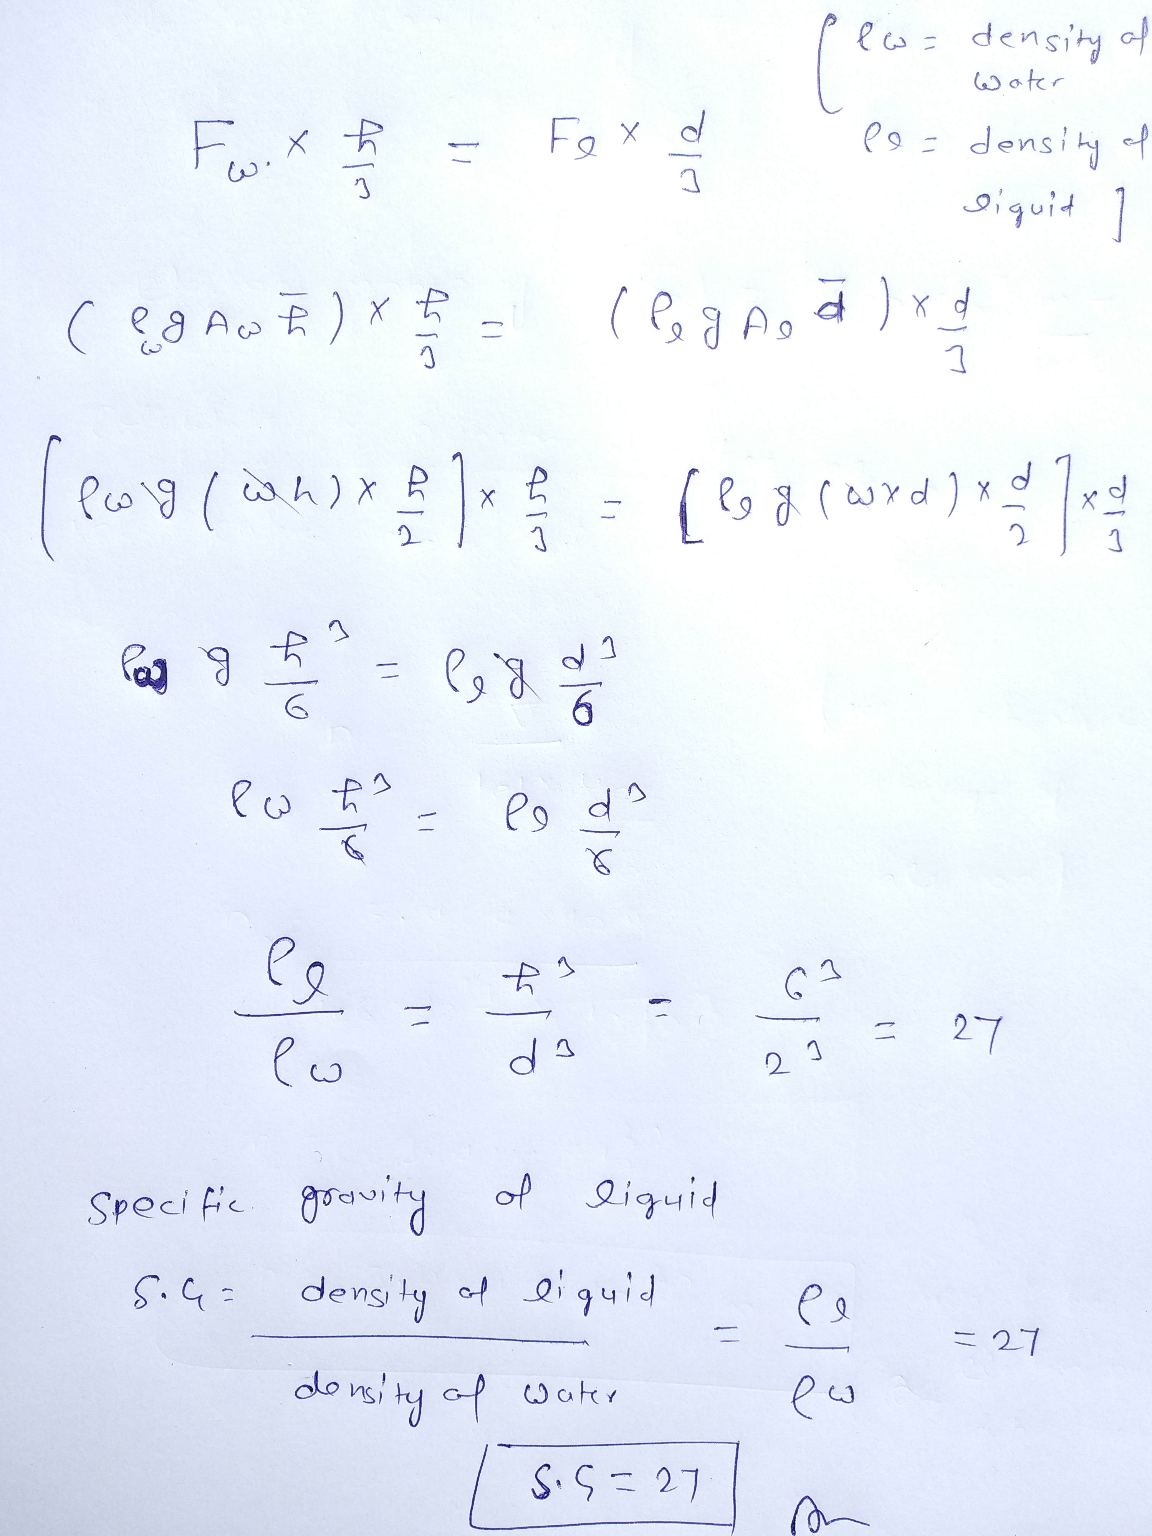 [ ρw = density of
water
Fw. × h/3 = Fl × d/3
ρl = density of
liquid ]
( ρw g Aw h̄ ) × h/3 = ( ρl g Al d̄ ) × d/3
[ ρw g ( wh ) × h/2 ] × h/3 = [ ρl g ( w×d ) × d/2 ] × d/3
ρw g h³/6 = ρl g d³/6
ρw h³/6 = ρl d³/6
ρl/ρw = h³/d³ = 6³/2³ = 27
specific gravity of liquid
S.G = density of liquid / density of water = ρl/ρw = 27
S.G = 27